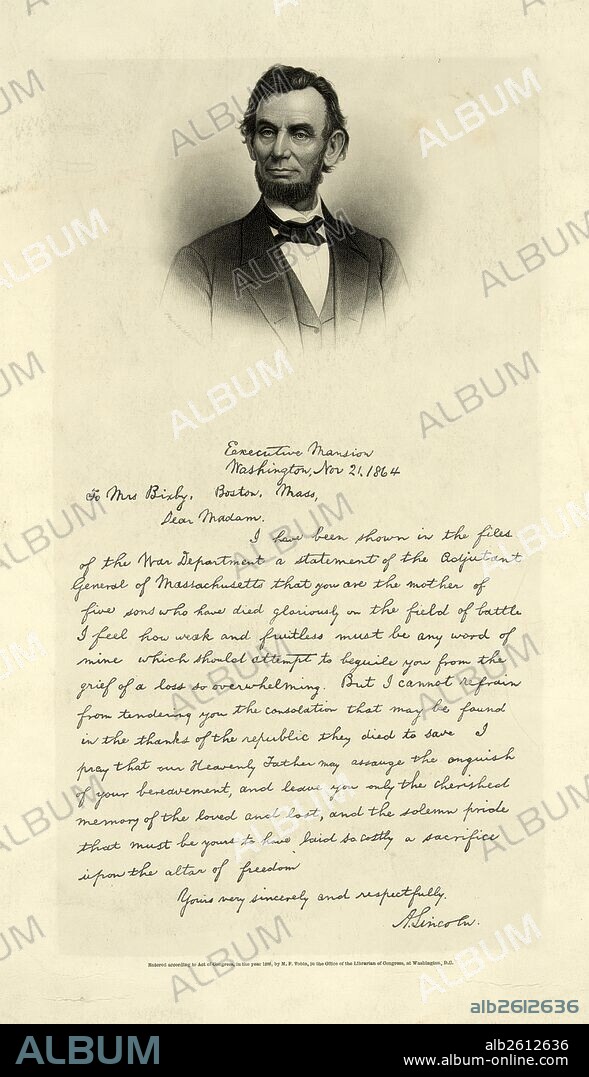 Executive Mansion
Washington, Nov 21, 1864
To Mrs Bixby, Boston, Mass,
Dear Madam.
I have been shown in the files
of the War Department a statement of the Adjutant
General of Massachusetts that you are the mother of
five sons who have died gloriously on the field of battle
I feel how weak and fruitless must be any word of
mine which should attempt to beguile you from the
grief of a loss so overwhelming. But I cannot refrain
from tendering you the consolation that may be found
in the thanks of the republic they died to save I
pray that our Heavenly Father may assuage the anguish
of your bereavement, and leave you only the cherished
memory of the loved and lost, and the solemn pride
that must be yours to have laid so costly a sacrifice
upon the altar of freedom
Yours very sincerely and respectfully.
A. Lincoln.
Entered according to Act of Congress, in the year by M. F. Tobin, in the Office of the Librarian of Congress, at Washington, D.C.
alb2612636
ALBUM
alb2612636
www.album-online.com